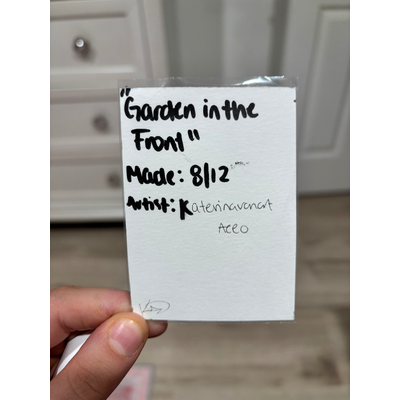 "Garden in the
Front"
Made: 8/12
Artist: Katerinavanart
ACEO